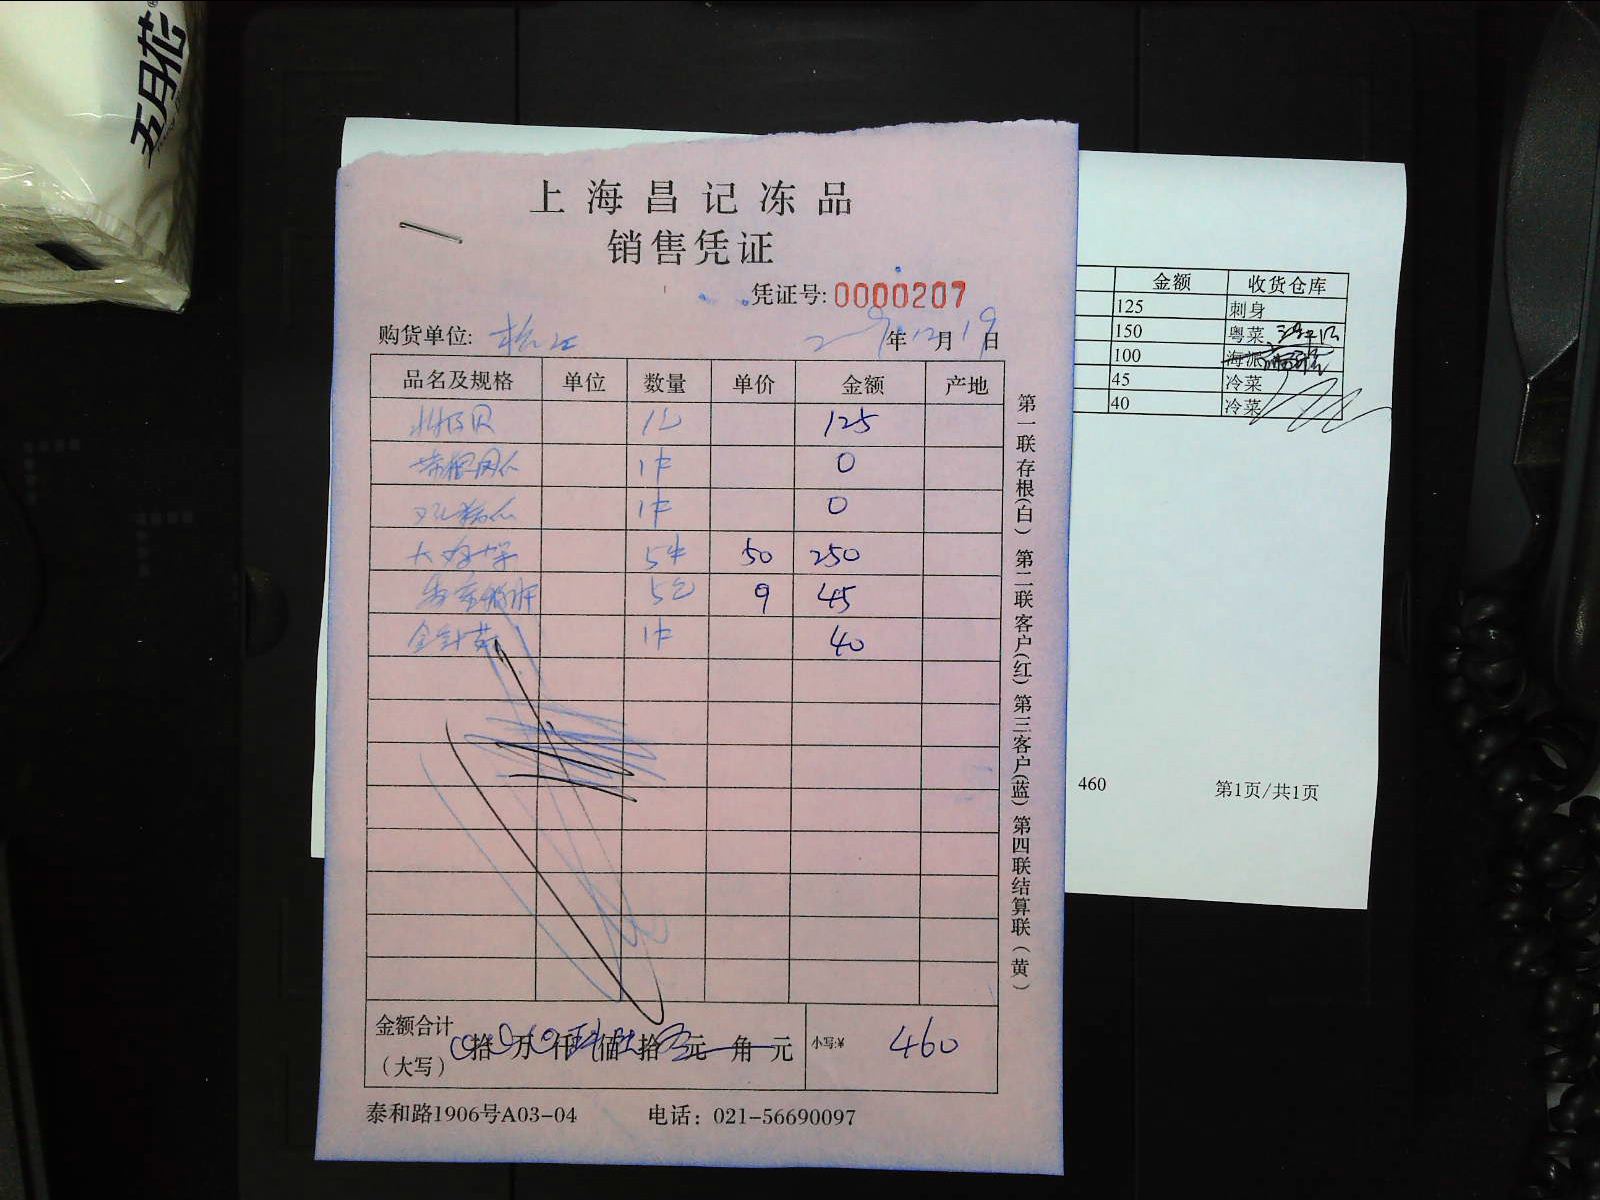 五月花
上海昌记冻品
销售凭证
凭证号: 0000207
购货单位: 松江 年12月19日
品名及规格 单位 数量 单价 金额 产地
125
1件 0
1件 0
5件 50 250
5包 9 45
金针菇 1件 40
金额合计
(大写) 拾 万 仟 佰 拾 元 角 元 小写:¥ 460
泰和路1906号A03-04 电话: 021-56690097
第一联存根(白) 第二联客户(红) 第三客户(蓝) 第四联结算联(黄)
金额 收货仓库
125 刺身
150 粤菜
100 海派
45 冷菜
40 冷菜
460 第1页/共1页